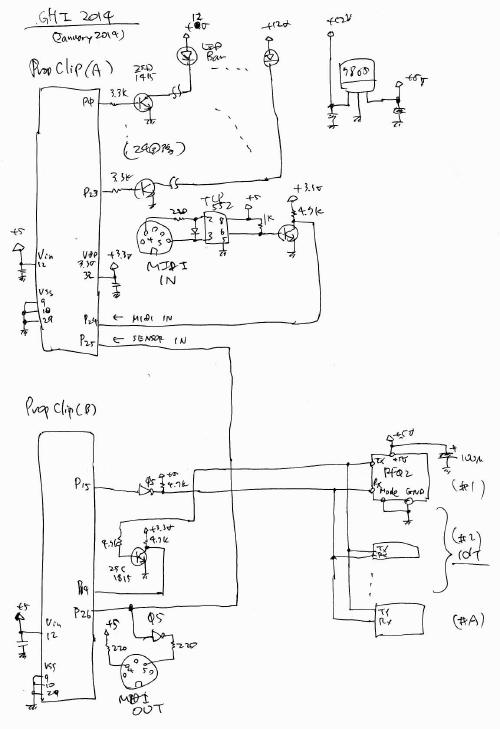 GHI 2014
(January 2014)
12
LED
Bar
12v
+12V
7805
+5v
PropClip (A)
2SC
1815
3.3K
P0
3.3K
P23
+5
Vin
12
VDD
3.3v
32
+3.3v
VSS
9
10
29
220
TLP
552
2
3
8
6
5
+5
1K
+3.3v
4.7K
4 5
MIDI
IN
P24
← MIDI IN
P25
← SENSOR IN
PropClip (B)
P15
+5
4.7K
+3.3v
4.7K
4.7K
2SC
1815
P19
P26
+5
Vin
12
VSS
9
10
29
+5
220
220
4 5
MIDI
OUT
+5v
Tx
+5V
Rx
Mode GND
+
100μ
(#1)
Tx
Rx
(#2)
Tx
Rx
(#A)